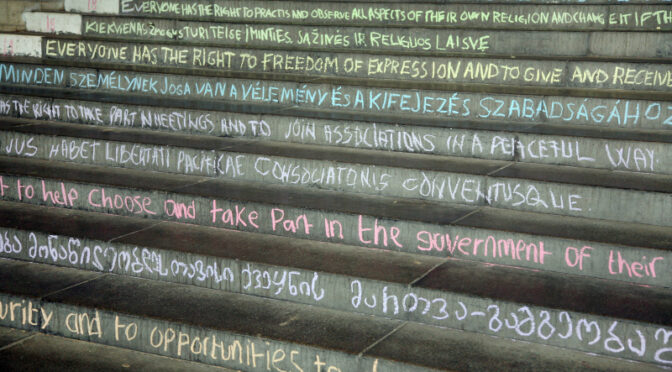 EVERYONE HAS THE RIGHT TO PRACTIS AND OBSERVE ALL ASPECTS OF THEIR OWN RELIGION AND CHANGE IT IF T
KIEKVIENAS TURI TEISĘ Į MINTIES, SĄŽINĖS IR RELIGIJOS LAISVĘ
EVERYONE HAS THE RIGHT TO FREEDOM OF EXPRESSION AND TO GIVE AND RECEIV
MINDEN SZEMÉLYNEK JOGA VAN A VÉLEMÉNY ÉS A KIFEJEZÉS SZABADSÁGÁHOZ
HAS THE RIGHT TO TAKE PART IN MEETINGS AND TO JOIN ASSOCIATIONS IN A PEACEFUL WAY.
JUS HABET LIBERTATI PACIFICAE CONSOCIATIONIS CONVENTUSQUE.
t to help choose and take part in the government of their
მონაწილეობდეს თავისი ქვეყნის მართვა-გამგეობაშ
urity and to opportunities to